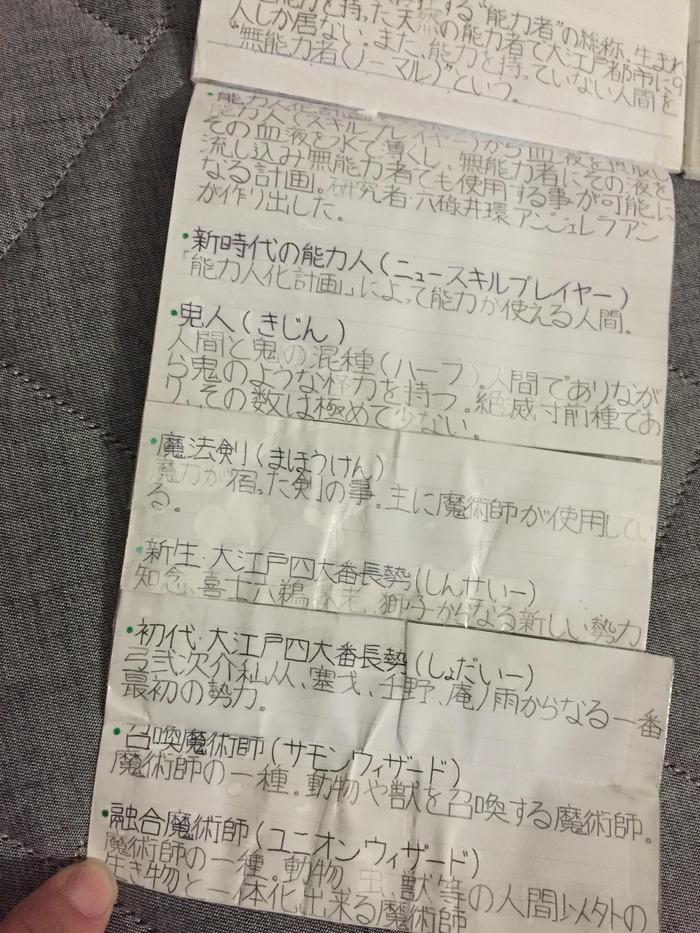 能力を持った天然の能力者で大江戸都市に9
人しか居ない。また、能力を持っていない人間を
“無能力者(ノーマル)”という。
能力人(スキルプレイヤー)から血液を
その血液を水で薄くし、無能力者にその液を
流し込み無能力者でも使用する事が可能に
なる計画。研究者:六碌井環アンジェレラアン
が作り出した。
・新時代の能力人(ニュースキルプレイヤー)
「能力人化計画」によって能力が使える人間。
・鬼人(きじん)
人間と鬼の混種(ハーフ)。人間でありなが
ら鬼のような怪力を持つ。絶滅寸前種であ
り、その数は極めて少ない。
・魔法剣(まほうけん)
魔力が宿った剣の事。主に魔術師が使用してい
る。
・新生:大江戸四大番長勢(しんせいー)
知念、喜士六鵜、老、獅子からなる新しい勢力
・初代:大江戸四大番長勢(しょだいー)
弓弐次介、塞戈、壬野、庵ノ雨からなる一番
最初の勢力。
・召喚魔術師(サモンウィザード)
魔術師の一種。動物や獣を召喚する魔術師。
・融合魔術師(ユニオンウィザード)
魔術師の一種。動物、虫、獣等の人間以外の
生き物と一体化出来る魔術師